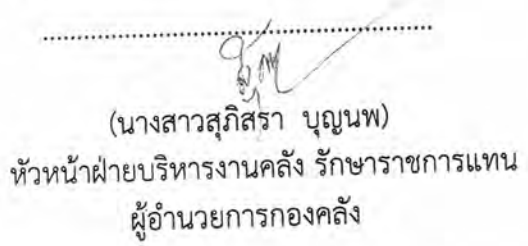 (นางสาวสุภิสรา บุญนพ)
หัวหน้าฝ่ายบริหารงานคลัง รักษาราชการแทน
ผู้อำนวยการกองคลัง